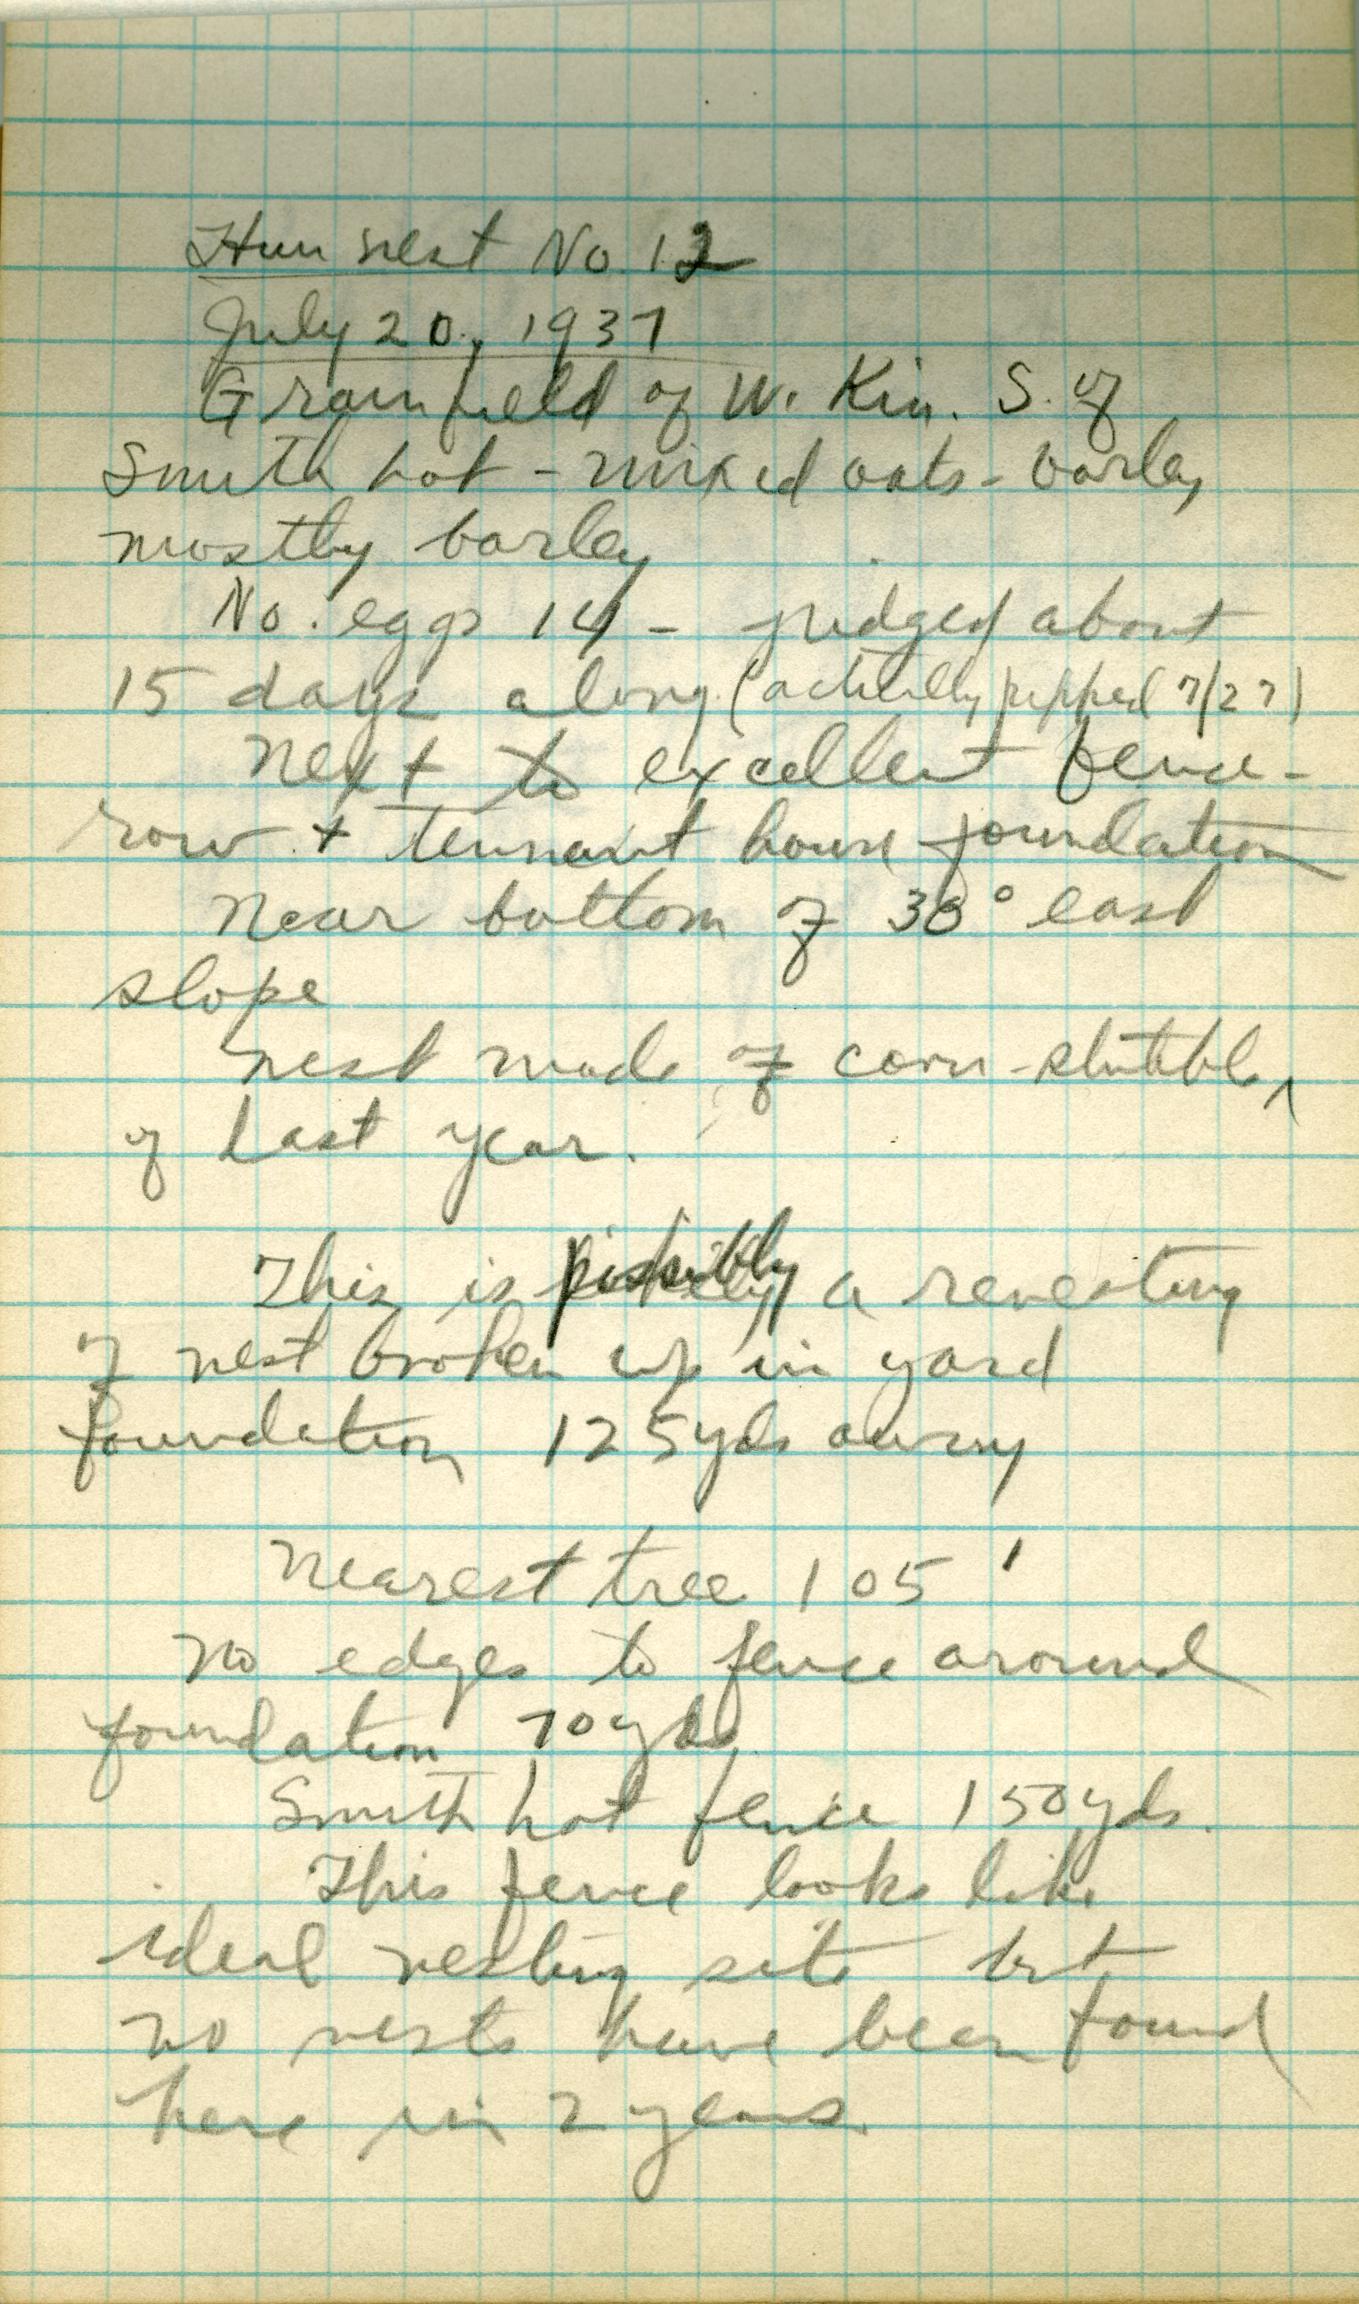 Hun nest No. 12
July 20, 1937
Grainfield of W. Kin. S. of
Smith hot - mixed oats - barley
mostly barley
No. eggs 14 - judged about
15 days along (actually pipped 7/27)
Next to excellent fence-
row + tennant house foundation
Near bottom of 38° east
slope
nest made of corn-stubble,
of last year.
This is possibly a renesting
of nest broken up in yard
foundation 125 yds away
Nearest tree 105'
No edges to fence around
foundation 70 yds
Smith hot fence 150 yds.
This fence looks like
ideal nesting site but
no nests have been found
here in 2 years.